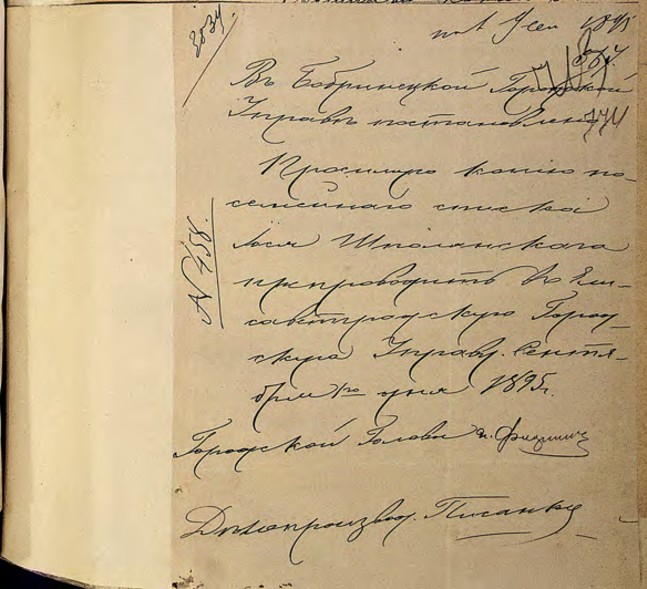 2034
1895
774
Въ Бобринецкой Городской
Управѣ постановлено
Просимую копію по-
семейнаго списка
Шполянскаго
препроводить въ Ели-
саветградскую Город-
скую Управу. Сентя-
бря дня 1895 г.
№ 458.
Городской Голова
Дѣлопроизвод. Писанко